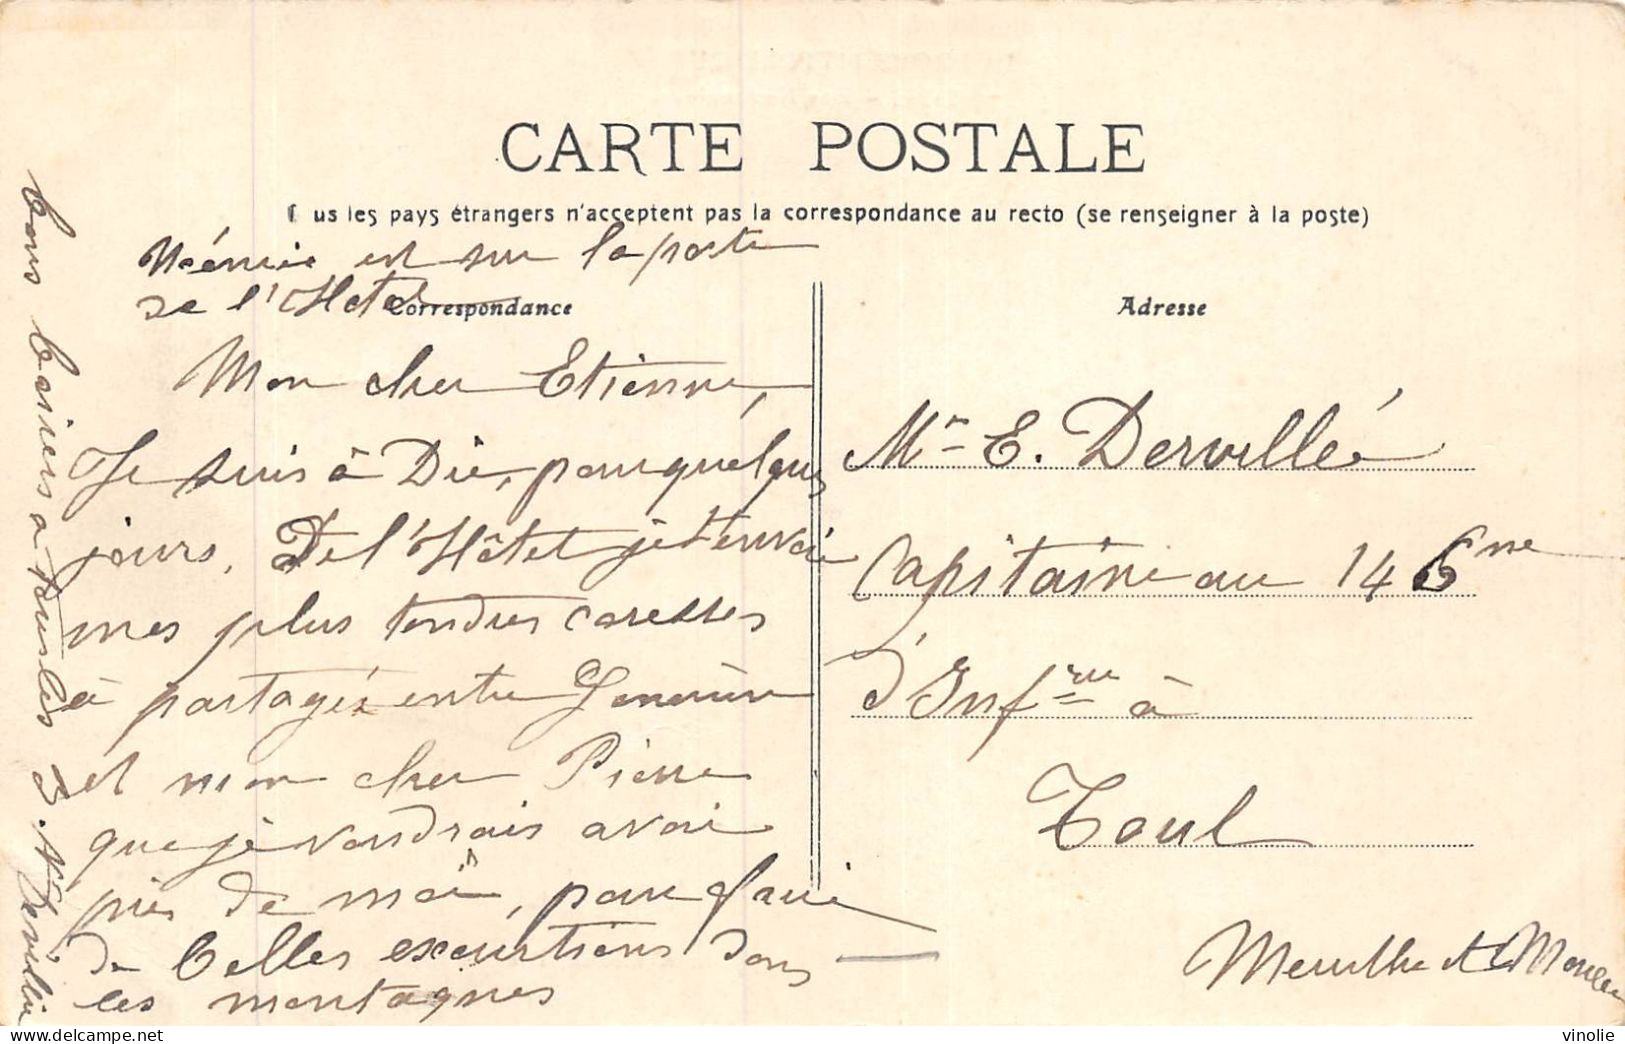 CARTE POSTALE
us les pays étrangers n'acceptent pas la correspondance au recto (se renseigner à la poste)
est sur la porte
de l'Hotel
Correspondance
Mon cher Etienne,
Je suis à Die, pour quelques
jours. De l'Hôtel je t'envoie
mes plus tendres caresses
à partagés entre Geneviève
et mon cher Pierre
que je voudrais avoir
près de moi, pour faire
de belles excurtions dans
les montagnes
bons baisers a tous les 3.
Adresse
Mr E. Dervillé
Capitaine au 146me
d'Infrie à
Toul
Meurthe et Moselle
vinolie